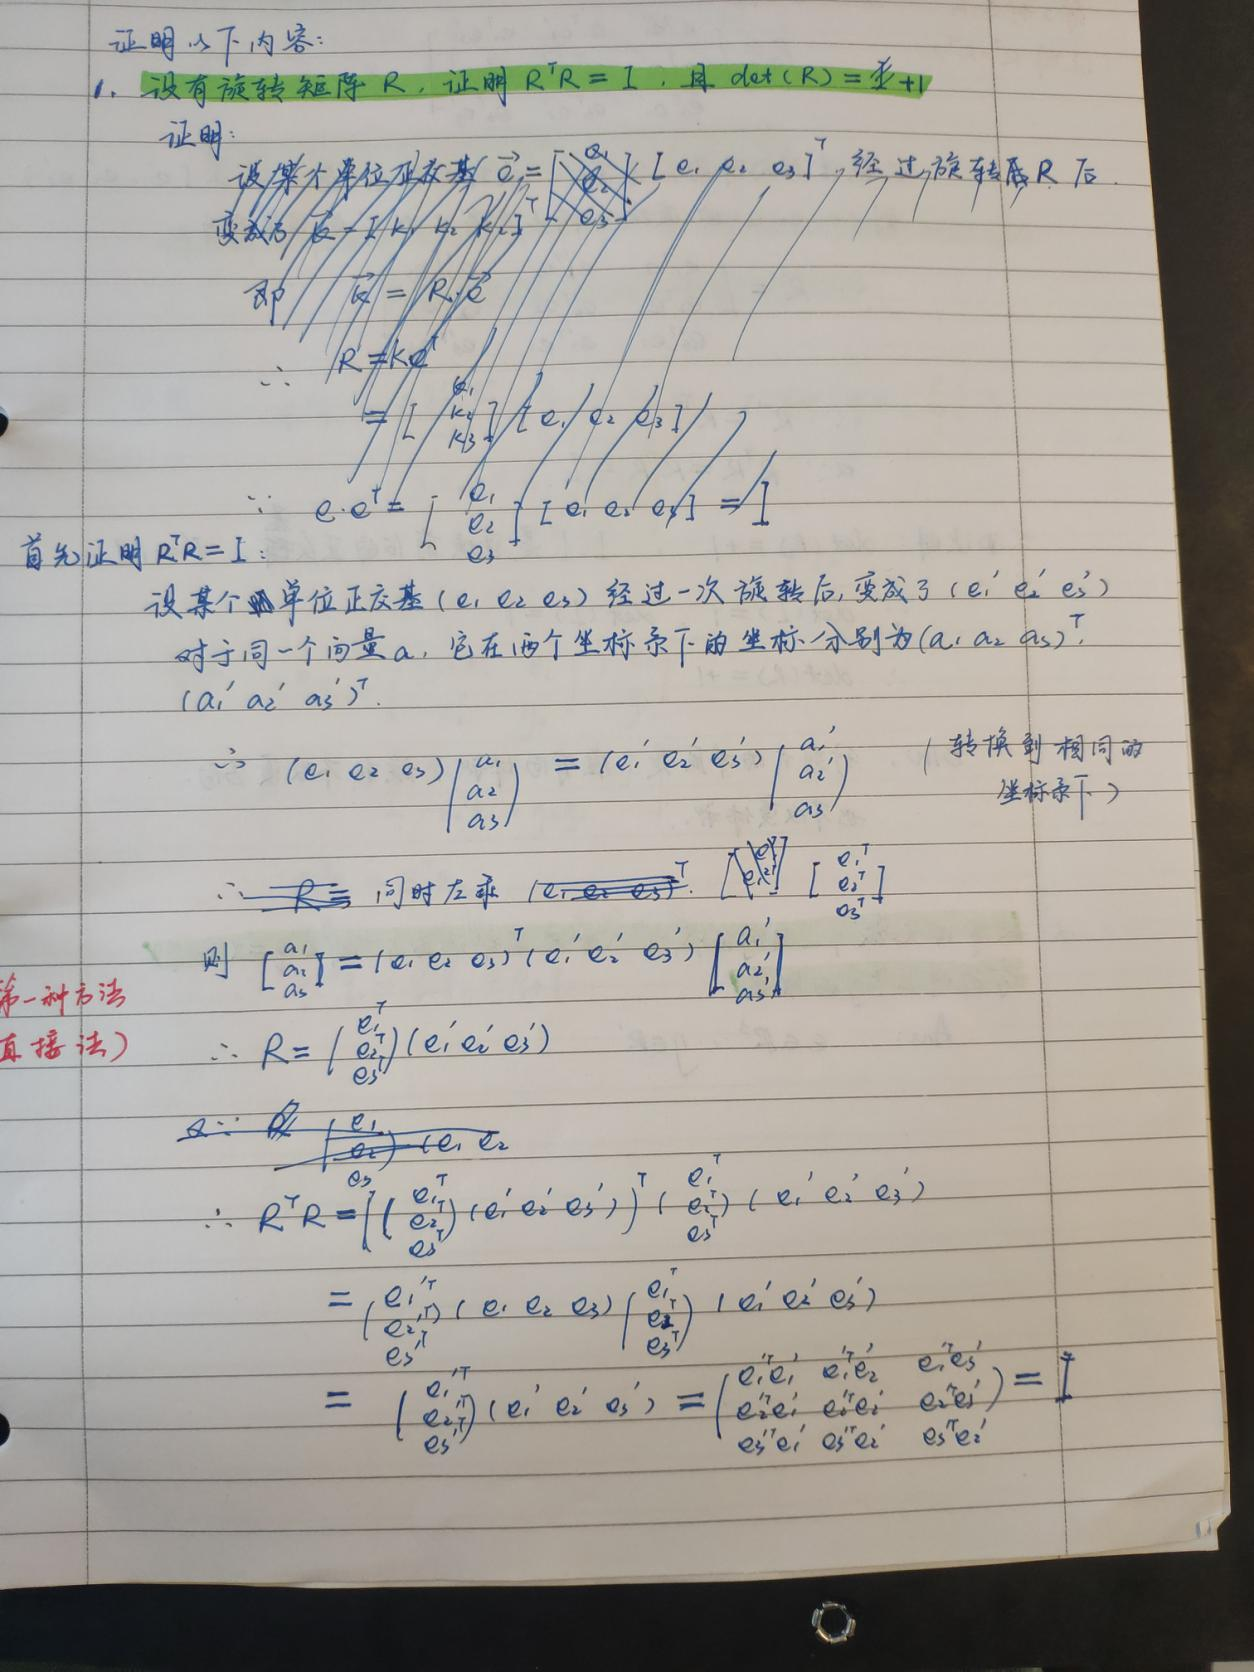 证明以下内容:
1. 设有旋转矩阵 R, 证明 RᵀR = I, 且 det(R) = +1
证明:
设某个单位正交基 e⃗ = [e₁ e₂ e₃]ᵀ 经过旋转 R 后
变成了 k⃗ = [k₁ k₂ k₃]ᵀ
即 k⃗ = R·e⃗
∴ R = k·eᵀ
= [k₁ k₂ k₃] [e₁ e₂ e₃]
∵ e·eᵀ = [e₁ e₂ e₃] [e₁ e₂ e₃] = I
首先证明 RᵀR = I:
设某个单位正交基 (e₁ e₂ e₃) 经过一次旋转后, 变成了 (e₁′ e₂′ e₃′)
对于同一个向量 a, 它在两个坐标系下的坐标分别为 (a₁ a₂ a₃)ᵀ,
(a₁′ a₂′ a₃′)ᵀ.
∴ (e₁ e₂ e₃) (a₁ a₂ a₃) = (e₁′ e₂′ e₃′) (a₁′ a₂′ a₃′) (转换到相同的
坐标系下)
∴ R = 同时左乘 (e₁ e₂ e₃)ᵀ. [e₁ᵀ e₂ᵀ e₃ᵀ]
则 [a₁ a₂ a₃] = (e₁ e₂ e₃)ᵀ (e₁′ e₂′ e₃′) [a₁′ a₂′ a₃′]
第一种方法
直接法)
∴ R = (e₁ᵀ e₂ᵀ e₃ᵀ) (e₁′ e₂′ e₃′)
∵ R (e₁ e₂ e₃) (e₁ e₂
∴ RᵀR = ((e₁ᵀ e₂ᵀ e₃ᵀ) (e₁′ e₂′ e₃′))ᵀ (e₁ᵀ e₂ᵀ e₃ᵀ) (e₁′ e₂′ e₃′)
= (e₁′ᵀ e₂′ᵀ e₃′ᵀ) (e₁ e₂ e₃) (e₁ᵀ e₂ᵀ e₃ᵀ) (e₁′ e₂′ e₃′)
= (e₁′ᵀ e₂′ᵀ e₃′ᵀ) (e₁′ e₂′ e₃′) = (e₁′ᵀe₁′ e₁′ᵀe₂′ e₁′ᵀe₃′ e₂′ᵀe₁′ e₂′ᵀe₂′ e₂′ᵀe₃′ e₃′ᵀe₁′ e₃′ᵀe₂′ e₃′ᵀe₂′) = I